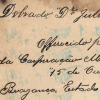 Dobrado "Dr Jul
Offerecido p
da Corporação M
15 de
Bragança, Estado